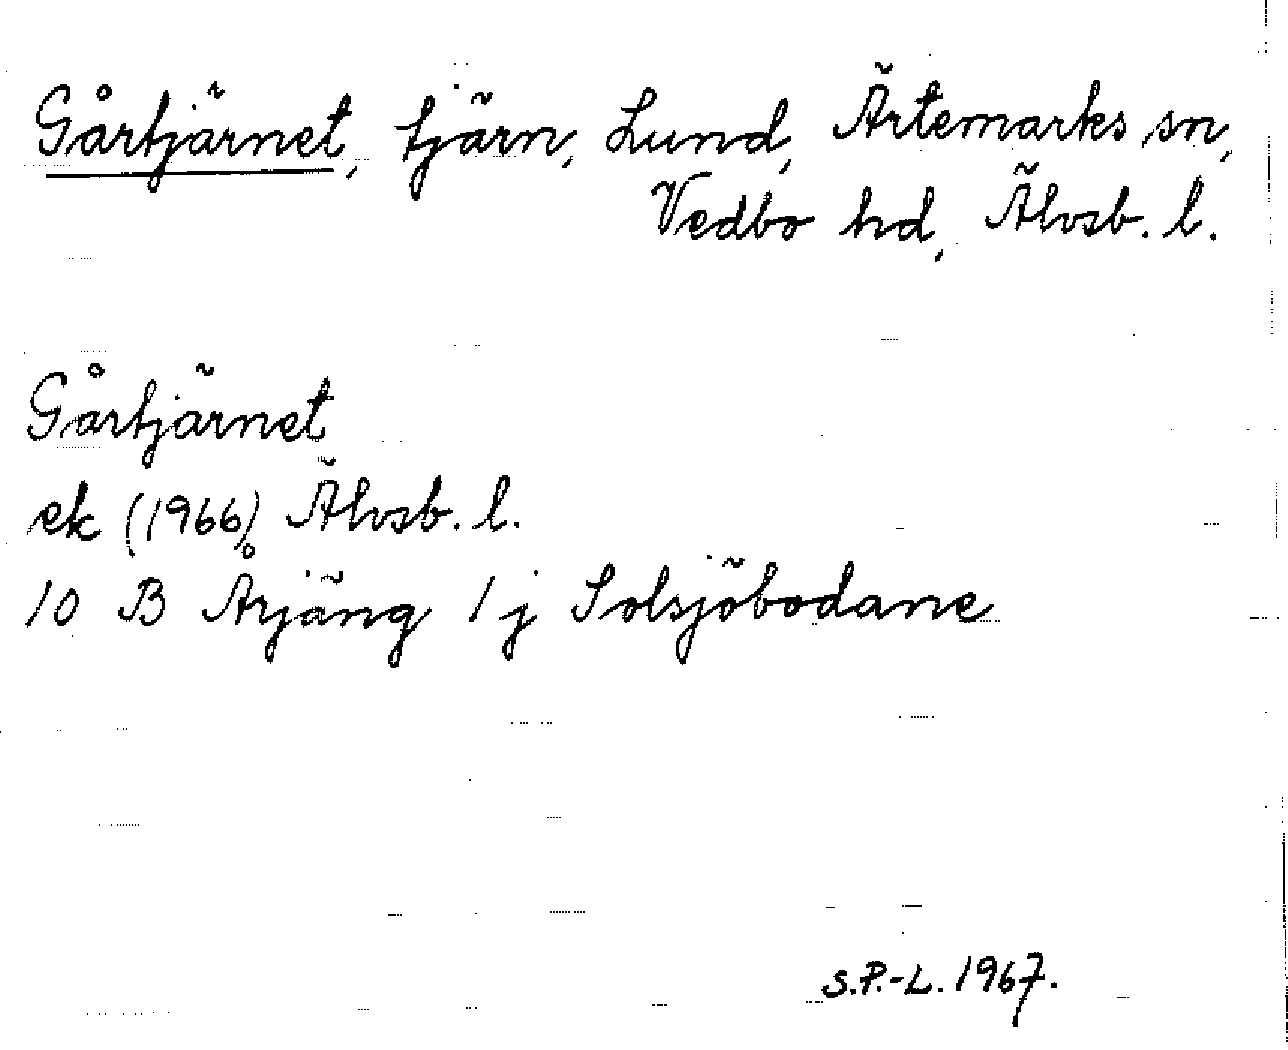 Gårtjärnet, tjärn, Lund, Ärtemarks sn,
Vedbo hd, Älvsb. l.
Gårtjärnet
ek (1966) Älvsb. l.
10 B Årjäng 1 j Solsjöbodane
S.P.-L. 1967.